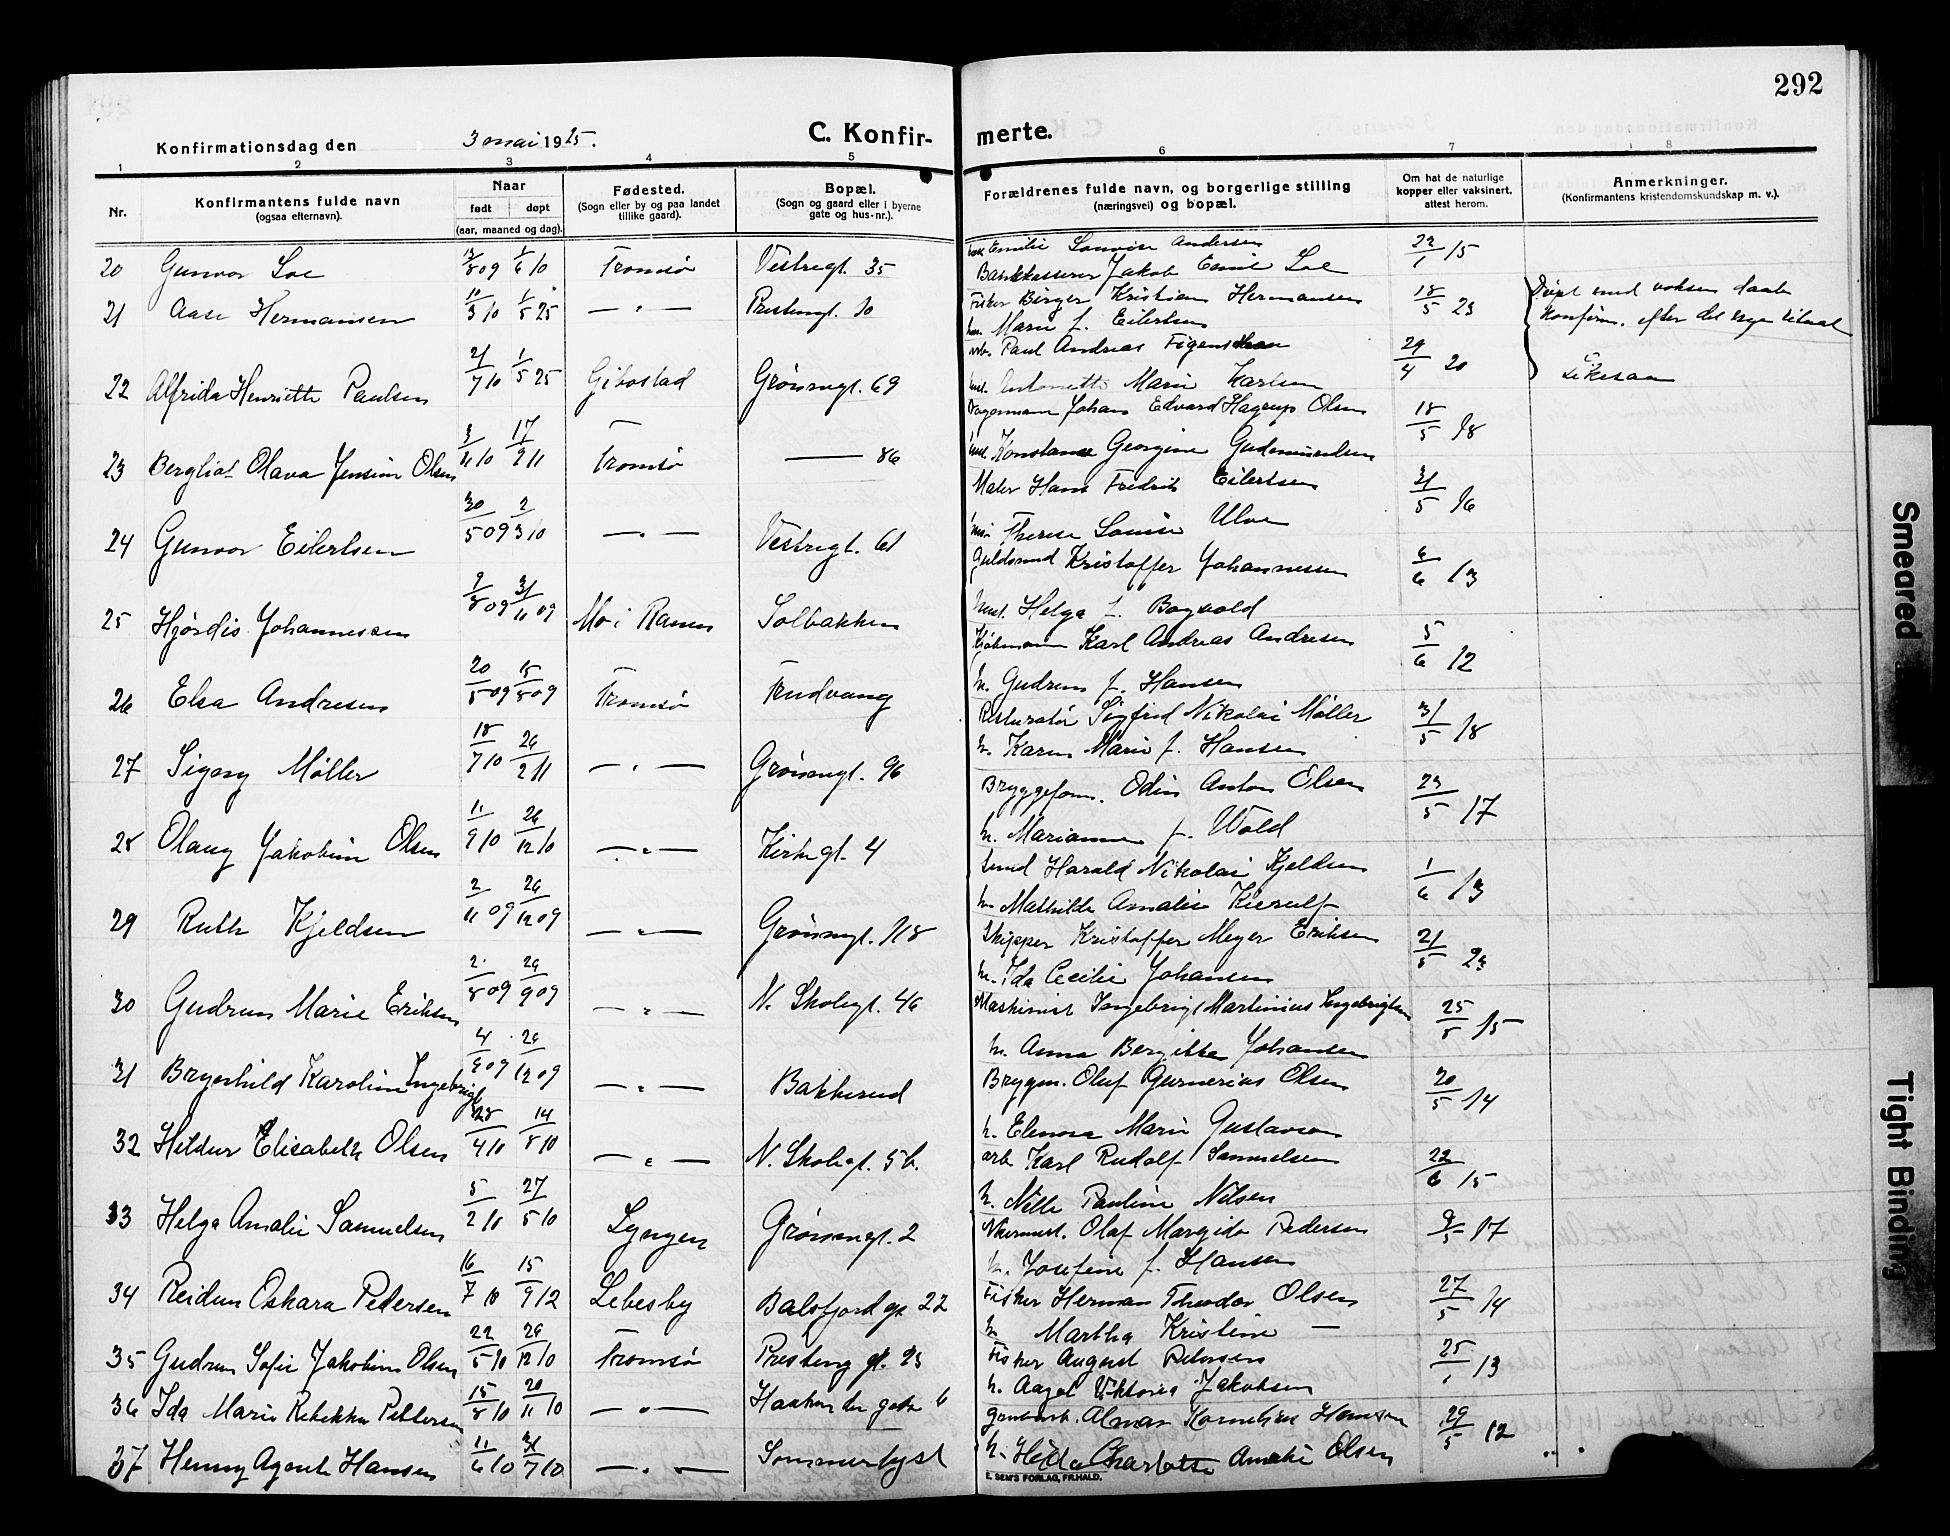 292
Konfirmationsdag den 3 mai 1925. C. Konfirmerte.
1 2 3 4 5 6 7 8
Nr. Konfirmantens fulde navn (ogsaa efternavn). Naar født døpt (aar, maaned og dag). Fødested. (Sogn eller by og paa landet tillike gaard). Bopæl. (Sogn og gaard eller i byerne gate og hus-nr.). Forældrenes fulde navn, og borgerlige stilling (næringsvei) og bopæl. Om hat de naturlige kopper eller vaksinert, attest herom. Anmerkninger. (Konfirmantens kristendomskundskap m. v.).
20 Gunvor Loe 1/6 10 Tromsø Vestregt. 35 Emilie Lovise Andersen
Bankkasserer Jakob Emil Loe
21 Aase Hermansen 10/3 10 1/5 25 — " — Prestengt. 10 Fisker Birger Kristian Hermansen 18/5 23 Døpt med voksen daab
Marie f. Eilertsen Konfirm. efter det nye ritual
22 Alfrida Henriette Paulsen 21/7 10 1/5 25 Gibostad Grønnegt. 69 arb. Paul Andreas 29/4 20 Likesaa
Antonette Marie Karlsen
23 Bergliot Olava Jensine Olsen 3/11 10 17/2 11 Tromsø — 86 Johan Edvard Hagerup Olsen 18/5 18
Konstanse Georgine Gudmundsen
24 Gunvor Eilertsen 30/5 09 2/3 10 — " — Vestregt. 61 Maler Hans Fredrik Eilertsen 31/5 16
Therese Lovise Ulve
25 Hjørdis Johannessen 31/10 09 Mo i Ranen Solbakken Guldsmed Kristoffer Johannessen 6/6 13
Helga f. Bogvold
26 Elsa Andresen 20/5 09 15/8 09 Tromsø Trudvang Kjøbmann Karl Andreas Andresen 5/6 12
h. Gudrun f. Hansen
27 Signy Møller 18/7 10 26/2 11 — " — Grønnegt. 96 Restauratør Sigfred Nikolai Møller 31/5 18
h. Karen Marie f. Hansen
28 Olaug Jakobine Olsen 11/9 10 26/12 10 — " — Kirkegt. 4 Bryggeform. Odin Anton Olsen 23/5 17
h. Marianne f. Wold
29 Ruth Kjeldsen 2/11 09 26/12 09 — " — Grønnegt. 118 Harald Nikolai Kjeldsen 1/6 13
h. Mathilde Amalie Kierulf
30 Gudrun Marie Eriksen 2/8 09 26/9 09 — " — N. Skolegt. 46 Skipper Kristoffer Meyer Eriksen 21/5 23
h. Ida Cecilie Johansen
31 Brynhild Karoline Ingebrigt 26/12 09 — " — Bakkerud Maskinist Ingebrigt Martinius Ingebrigtsen 25/5 15
h. Anna Bergitte Johansen
32 Hildur Elisabeth Olsen 28/4 10 14/8 10 — " — N. Skolegt. 5 b. Bryggm. Oluf Gurnerius Olsen 20/5 14
h. Elenora Marie Gustavson
33 Helga Amalie Samuelsen 5/2 10 27/5 10 Lyngen Grønnegt. 2 arb. Karl Rudolf Samuelsen 22/6 15
h. Nille Pauline Nilsen
34 Reidun Oskara Pedersen 16/7 10 15/9 12 Lebesby Balsfjordgt. 22 Olaf Margido Pedersen 9/5 17
h. Josefine f. Hansen
35 Gudrun Sofie Jakobine Olsen 22/5 10 26/12 10 Tromsø Presteng gt. 23 Fisker Herman Theodor Olsen 27/5 14
h. Martha Kristine —
36 Ida Marie Rebekka Pettersen 15/8 10 20/11 10 — " — Haakon 6 Fisker August Petersen 25/ 13
h. Aagot Viktoria Jakobsen
37 Henny Agnete Hansen 11/6 10 31/7 10 — " — Sommerlyst Kornelius Hansen 29/5 12
h. Charlotte Amalie Olsen
E. SEM'S FORLAG, FR.HALD.
Smeared
Tight Binding